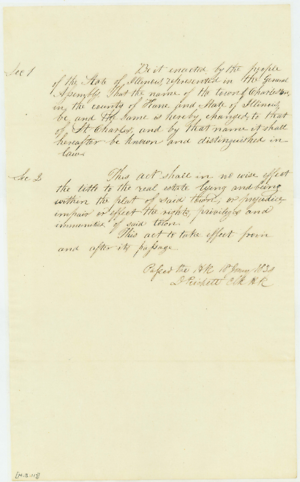 Sec 1 Be it enacted by the people
of the State of Illinois, represented in the General
Assembly, That the name of the town of Charleston
in the county of Kane and State of Illinois,
be, and the same is hereby changed to that
of St Charles, and by that name it shall
hereafter be known and distinguished in
law.
Sec 2 This act shall in no wise effect
the title to the real estate lying and being
within the plat of said town, or prejudice
impair or effect the rights, privileges and
immunities of said town.
This act to take effect from
and after its passage.
Passed the H R
Prickett Clk H R